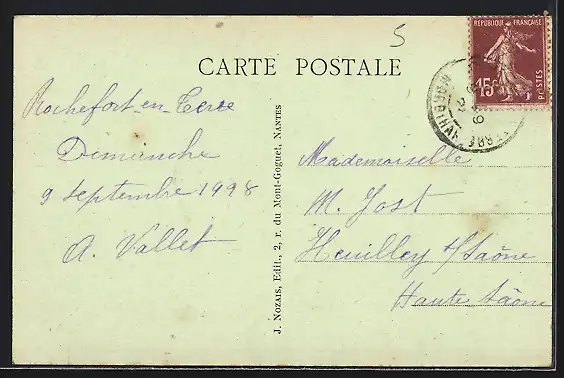 5
CARTE POSTALE
RÉPUBLIQUE FRANÇAISE
15c
POSTES
MORBIHAN
Rochefort-en-Terre
Dimanche
9 septembre 1928
A. Vallet
J. NOZAIS, Edit., 2, r. du Mont-Goguet, NANTES
Mademoiselle
M. Jost
Heuilley s/Saône
Haute Saône